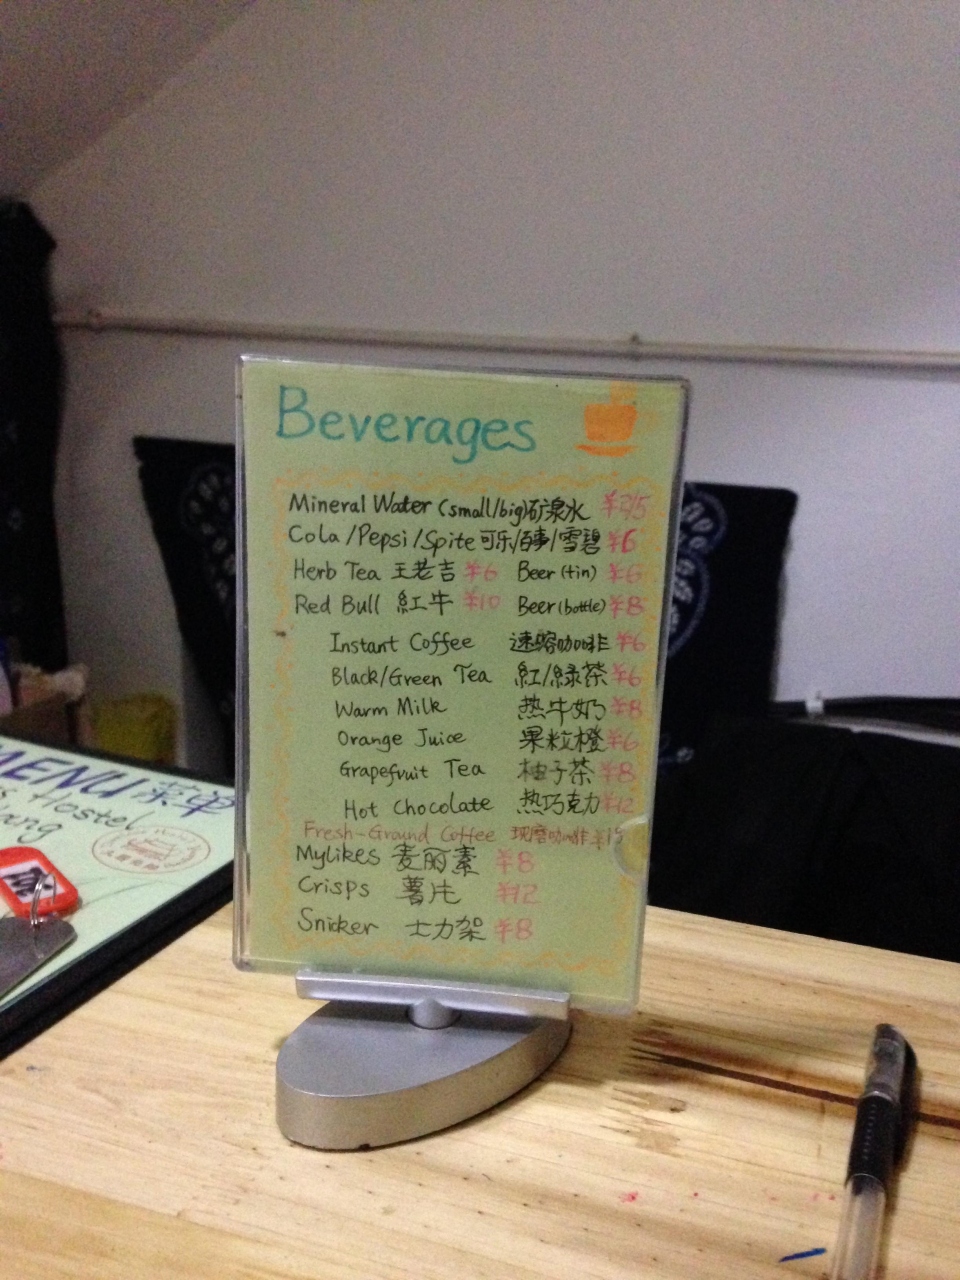 Beverages
Mineral Water (small/big) 矿泉水 ¥3/5
Cola/Pepsi/Spite 可乐/百事/雪碧 ¥6
Herb Tea 王老吉 ¥6 Beer (tin) ¥6
Red Bull 紅牛 ¥10 Beer (bottle) ¥8
Instant Coffee 速溶咖啡 ¥6
Black/Green Tea 紅/緑茶 ¥6
Warm Milk 热牛奶 ¥8
Orange Juice 果粒橙 ¥6
Grapefruit Tea 柚子茶 ¥8
Hot Chocolate 热巧克力 ¥12
Fresh-Ground Coffee 现磨咖啡 ¥15
Mylikes 麦丽素 ¥8
Crisps 薯片 ¥12
Snicker 士力架 ¥8
MENU 菜单
Hostel